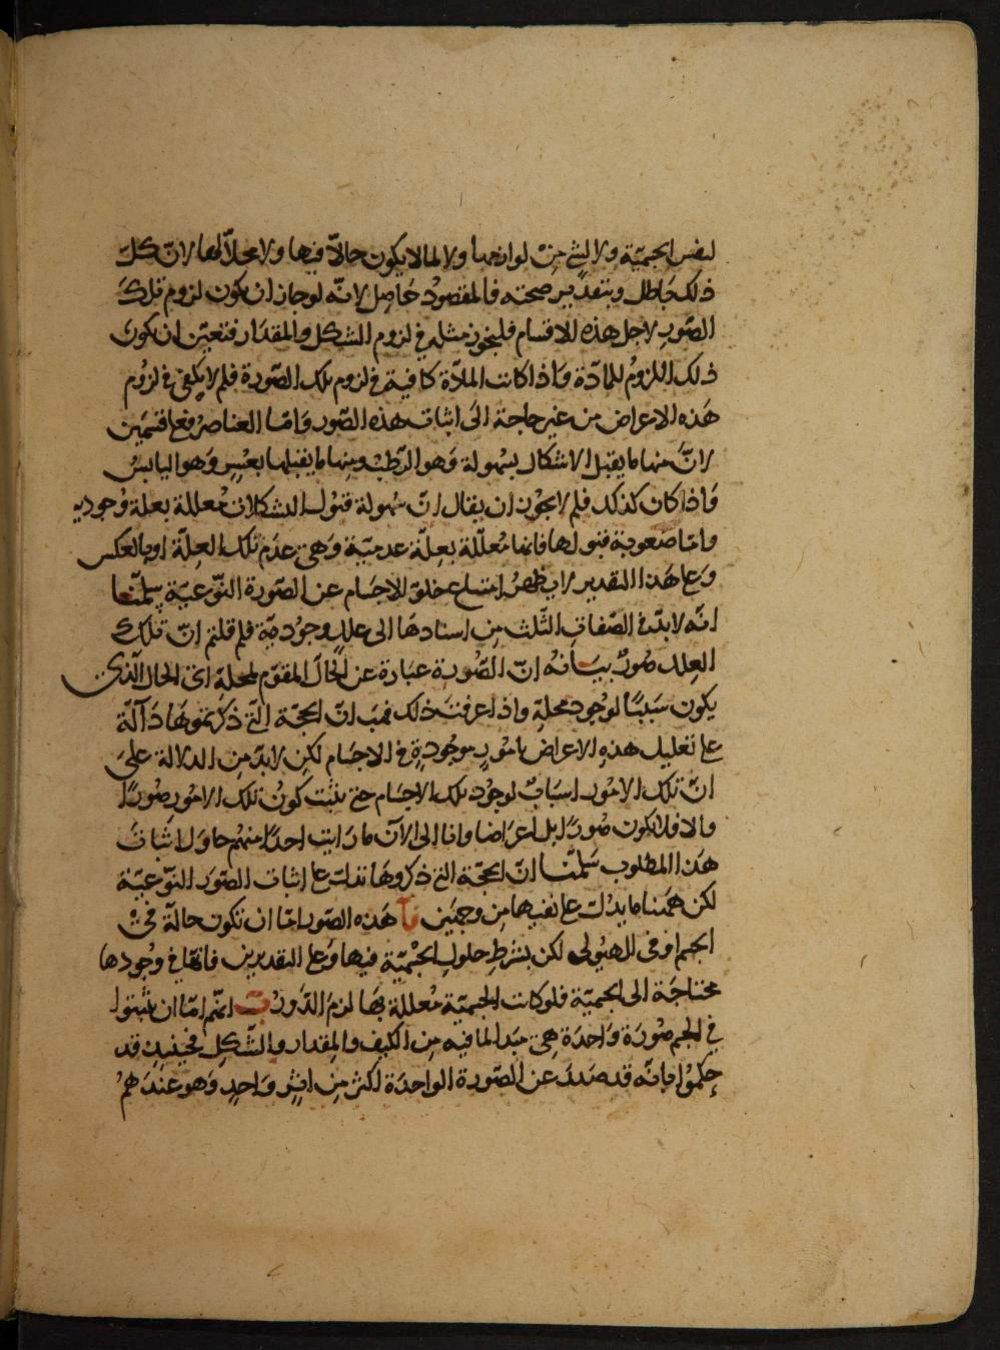 لنفس الجسميّة ولا لشئ من لوازمها ولا لما لا يكون حالاّ فيها ولا محلاّ لها لانّ كلّ
ذلك باطل وبتقدير صحته فالمقصود حاصل لانّه لو جاز ان يكون لزوم تلك
الصّور لاجل هذه الاقسام فليجوز مثله فى لزوم الشكل والمقدار فتعيّن ان يكون
ذلك اللزوم للمادّة واذا كانت المادّة كافية فى لزوم تلك الصّورة فلم لا يكفى فى لزوم
هذه الاعراض من غير حاجة الى اثبات هذه الصّور وامّا العناصر فعلى قسمين
لانّ منها ما يقبل الاشكال بسهولة وهو الرّطب ومنها ما يقبلها بعسر وهو اليابس
واذا كان كذلك فلم لا يجوز ان يقال انّ سهولة قبول الشكل ان معللة بعلة وجودية
وامّا صعوبة قبولها فانها معلّلة بعلّة عدميّة وهى عدم تلك العلّة او بالعكس
وعلى هذا التقدير لا يظهر امتناع خلوّ الاجسام عن الصّورة النّوعيّة سلّمنا
انّه لا بدّ فى الصّفات الثّلث من اسنادها الى علل وجوديّة فلم قلتم انّ تلك
العلل صور بيانه انّ الصّورة عبارة عن الحالّ المقوّم لمحلّه اى الحال الّذى
يكون سببًا لوجود محلّه واذا عرفت ذلك فهب انّ الحجّة الّتى ذكرتموها دالّة
على تعليل هذه الاعراض بامور موجودة فى الاجسام لكن لا بدّ من الدلالة على
انّ تلك الامور اسباب لوجود تلك الاجسام حتى يثبت كون تلك الامور صورًا
والا فلا تكون صورًا بل اعراضا وانا الى الآن ما رايت احدًا منهم حاول اثبات
هذا المطلوب سلّمنا انّ الحجّة التى ذكروها تدلّ على اثبات الصّور النّوعيّة
لكن ههنا ما يدلّ على نفيها من وجهين آ هذه الصّور امّا ان تكون حالة فى
الجسم او فى الهيولى لكن بشرط حلول الجسميّة فيها وعلى التقديرين فانّها فى وجودها
محتاجة الى الجسميّة فلو كانت الجسميّة معللة بها لزم الدّور ب انّهم امّا ان يثبتوا
فى الجسم صورة واحدة هى مبدا لما فيه من الكيف والمقدار والشّكل فحينئذ قد
حكموا فانّه قد صدر عن الصّورة الواحدة اكثر من اثر واحد وهو عندهم